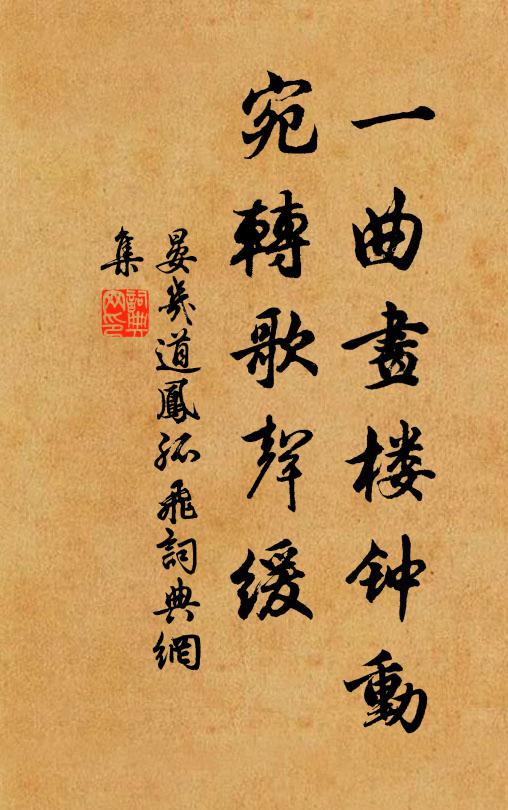 一曲畫楼钟動
宛轉歌聲緩
晏㡬道鳳孤飛詞典網
集
詞典
网印